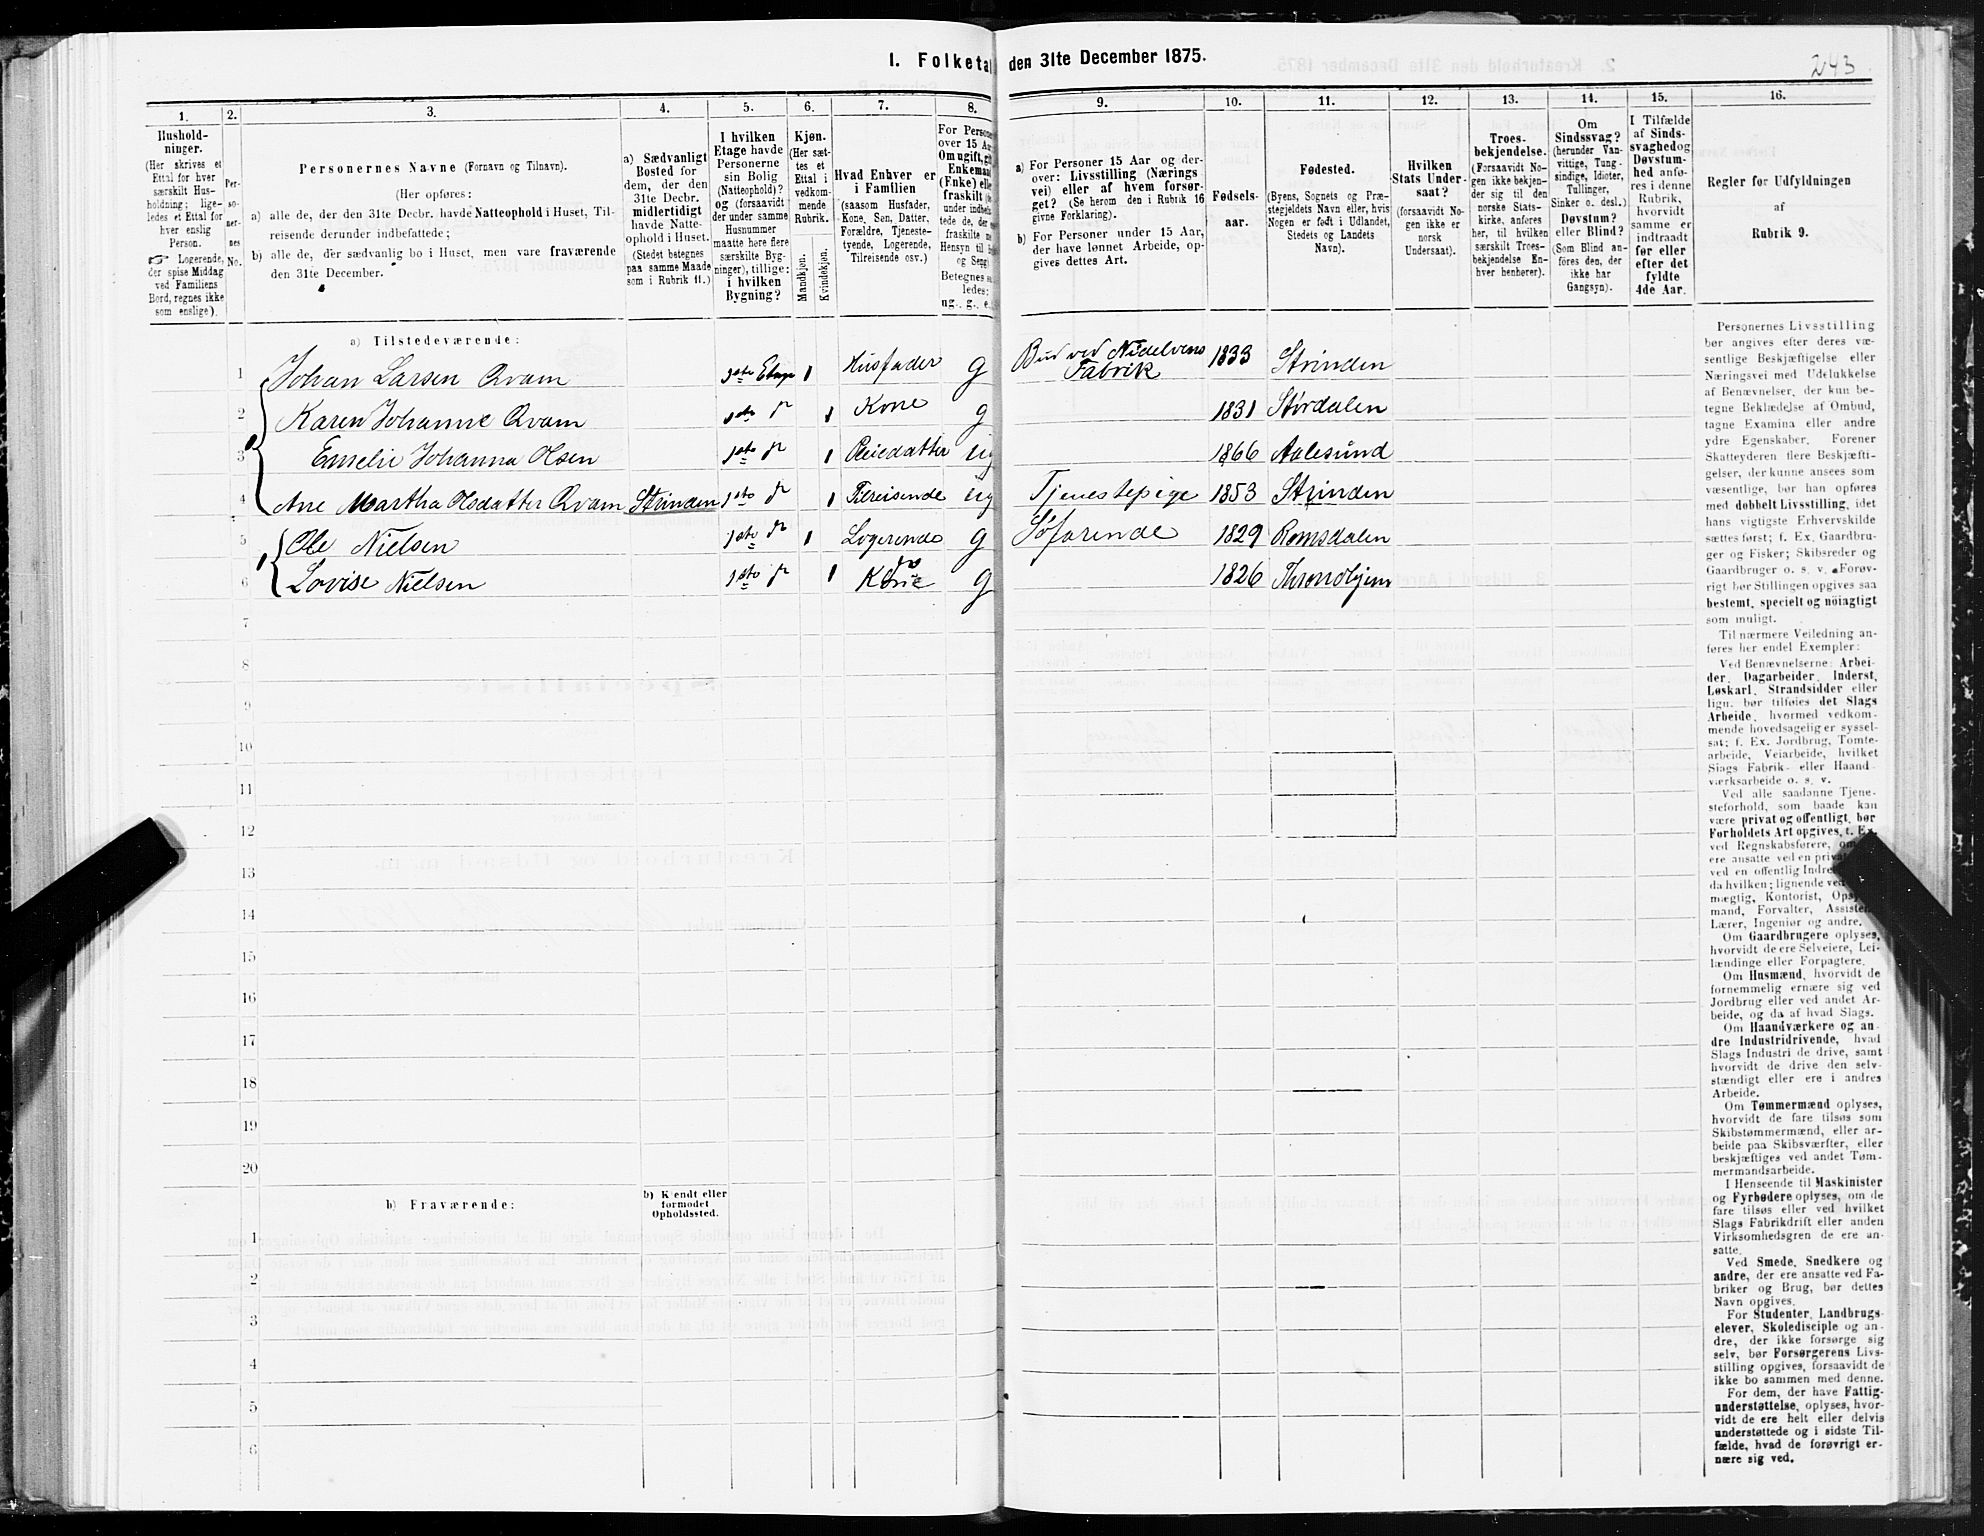 1. Folketal den 31te December 1875.
243
1. 2. 3. 4. 5. 6. 7. 8. 9. 10. 11. 12. 13. 14. 15. 16.
Hushold-
ninger.
(Her skrives et
Ettal for hver
særskilt Hus-
holdning; lige-
ledes et Ettal for
hver enslig
Person.
☞ Logerende,
der spise Middag
ved Familiens
Bord, regnes ikke
som enslige).
Per-
so-
ner-
nes
No.
Personernes Navne (Fornavn og Tilnavn).
(Her opføres:
a) alle de, der den 31te Decbr. havde Natteophold i Huset, Til-
reisende derunder indbefattede;
b) alle de, der sædvanlig bo i Huset, men vare fraværende
den 31te December.
a) Sædvanligt
Bosted for
dem, der den
31te Decbr.
midlertidigt
havde Natte-
ophold i Huset.
(Stedet betegnes
paa samme Maade
som i Rubrik 11.)
I hvilken
Etage havde
Personerne
sin Bolig
(Natteophold)?
og (forsaavidt
der under samme
Husnummer
maatte høre flere
særskilte Byg-
ninger), tillige:
i hvilken
Bygning?
Kjøn.
(Her sæt-
tes et
Ettal i
vedkom-
mende
Rubrik.
Mandkjøn.
Kvindekjøn.
Hvad Enhver er
i Familien
(saasom Husfader,
Kone, Søn, Datter,
Forældre, Tjeneste-
tyende, Logerende,
Tilreisende osv.)
For Persone
over 15 Aa
Om ugift, gift
Enkemand
(Enke) elle
fraskilt
under indbefa
tede de, de
fraskilte
Hensyn til
og Seng
Betegnes s
ledes:
ug., g., e.
a) For Personer 15 Aar og der-
over: Livsstilling (Nærings
vei) eller af hvem forsør-
get? (Se herom den i Rubrik 16
givne Forklaring).
b) For Personer under 15 Aar,
der have lønnet Arbeide, op-
gives dettes Art.
Fødsels-
aar.
Fødested.
(Byens, Sognets og Præ-
stegjeldets Navn eller, hvis
Nogen er født i Udlandet,
Stedets og Landets
Navn).
Hvilken
Stats Under-
saat?
(forsaavidt No-
gen ikke er
norsk
Undersaat).
Troes-
bekjendelse.
(Forsaavidt No-
gen ikke bekjen-
der sig til den
norske Stats-
kirke, anføres
her, til hvilken
særskilt Troes-
bekjendelse En-
hver henhører).
Om
Sindssvag?
(herunder Van-
vittige, Tung-
sindige, Idioter,
Tullinger,
Sinker o. desl.)
Døvstum?
eller Blind?
(Som Blind an-
føres den, der
ikke har
Gangsyn).
I Tilfælde
af Sinds-
svaghed og
Døvstum-
hed anfø-
res i denne
Rubrik,
hvorvidt
samme er
indtraadt
før eller
efter det
fyldte
4de Aar.
Regler for Udfyldningen
af
Rubrik 9.
a) Tilstedeværende:
1 Johan Larsen Qvam 1ste Etage 1 Husfader g Bud ved Nidelvens Fabrik 1833 Strinden
2 Karen Johanne Qvam 1ste do 1 Kone g 1831 Størdalen
3 Emelie Johanna Olsen 1ste do 1 Pleiedatter ug 1866 Aalesund
4 Ane Martha Olsdatter Qvam Strinden 1ste do 1 Tilreisende ug Tjenestepige 1853 Strinden
5 Ole Nielsen 1ste do 1 Logerende g Søfarende 1829 Romsdalen
6 Lovise Nielsen 1ste do 1 do Kone g 1826 Throndhjem
7
8
9
10
11
12
13
14
15
16
17
18
19
20
b) Fraværende:
b) Kjendt eller
formodet
Opholdssted.
1
2
3
4
5
6
Personernes Livsstilling
bør angives efter deres væ-
sentlige Beskjæftigelse eller
Næringsvei med Udelukkelse
af Benævnelser, der kun be-
tegne Beklædelse af Ombud,
tagne Examina eller andre
ydre Egenskaber. Forener
Skatteyderen flere Beskjæfti-
gelser, der kunne ansees som
væsentlige, bør han opføres
med dobbelt Livsstilling, idet
hans vigtigste Erhvervskilde
sættes først; f. Ex. Gaardbru-
ger og Fisker; Skibsreder og
Gaardbruger o. s. v. Forøv-
rigt bør Stillingen opgives saa
bestemt, specielt og nøiagtigt
som muligt.
Til nærmere Veiledning an-
føres her endel Exempler:
Ved Benævnelserne: Arbei-
der, Dagarbeider, Inderst,
Løskarl, Strandsidder eller
lign. bør tilføies det Slags
Arbeide, hvormed vedkom-
mende hovedsagelig er syssel-
sat; f. Ex. Jordbrug, Tomte-
arbeide, Veiarbeide, hvilket
Slags Fabrik- eller Haand
værksarbeide o. s. v.
Ved alle saadanne Tjene-
steforhold, som baade kan
være privat og offentligt, bør
Forholdets Art opgives, f. Ex.
ved Regnskabsførere, om
ere ansatte ved en privat
ved en offentlig Indre
da hvilken; lignende ved
mægtig, Kontorist, Opsyns
mand, Forvalter, Assistent
Lærer, Ingeniør og andre.
Om Gaardbrugere oplyses,
hvorvidt de ere Selveiere, Lei-
lændinge eller Forpagtere.
Om Husmænd, hvorvidt de
fornemmelig ernære sig ved
Jordbrug eller ved andet Ar-
beide, og da af hvad Slags.
Om Haandværkere og an-
dre Industridrivende, hvad
Slags Industri de drive, samt
hvorvidt de drive den selv-
stændigt eller ere i andres
Arbeide.
Om Tømmermænd oplyses,
hvorvidt de fare tilsøs som
Skibstømmermænd, eller ar-
beide paa Skibsværfter, eller
beskjæftiges ved andet Tøm-
mermandsarbeide.
I Henseende til Maskinister
og Fyrbødere oplyses, om de
fare tilsøs eller ved hvilket
Slags Fabrikdrift eller anden
Virksomhedsgren de ere an-
satte.
Ved Smede, Snedkere og
andre, der ere ansatte ved Fa-
briker og Brug, bør dettes
Navn opgives.
For Studenter, Landbrugs-
elever, Skoledisciple og an-
dre, der ikke forsørge sig
selv, bør Forsørgerens Livs-
stilling opgives, forsaavidt de
ikke bo sammen med denne.
For dem, der have Fattig-
understøttelse, oplyses, hvor-
vidt de ere helt eller delvis
understøttede og i sidste Til-
fælde, hvad de forøvrigt er-
nære sig ved.